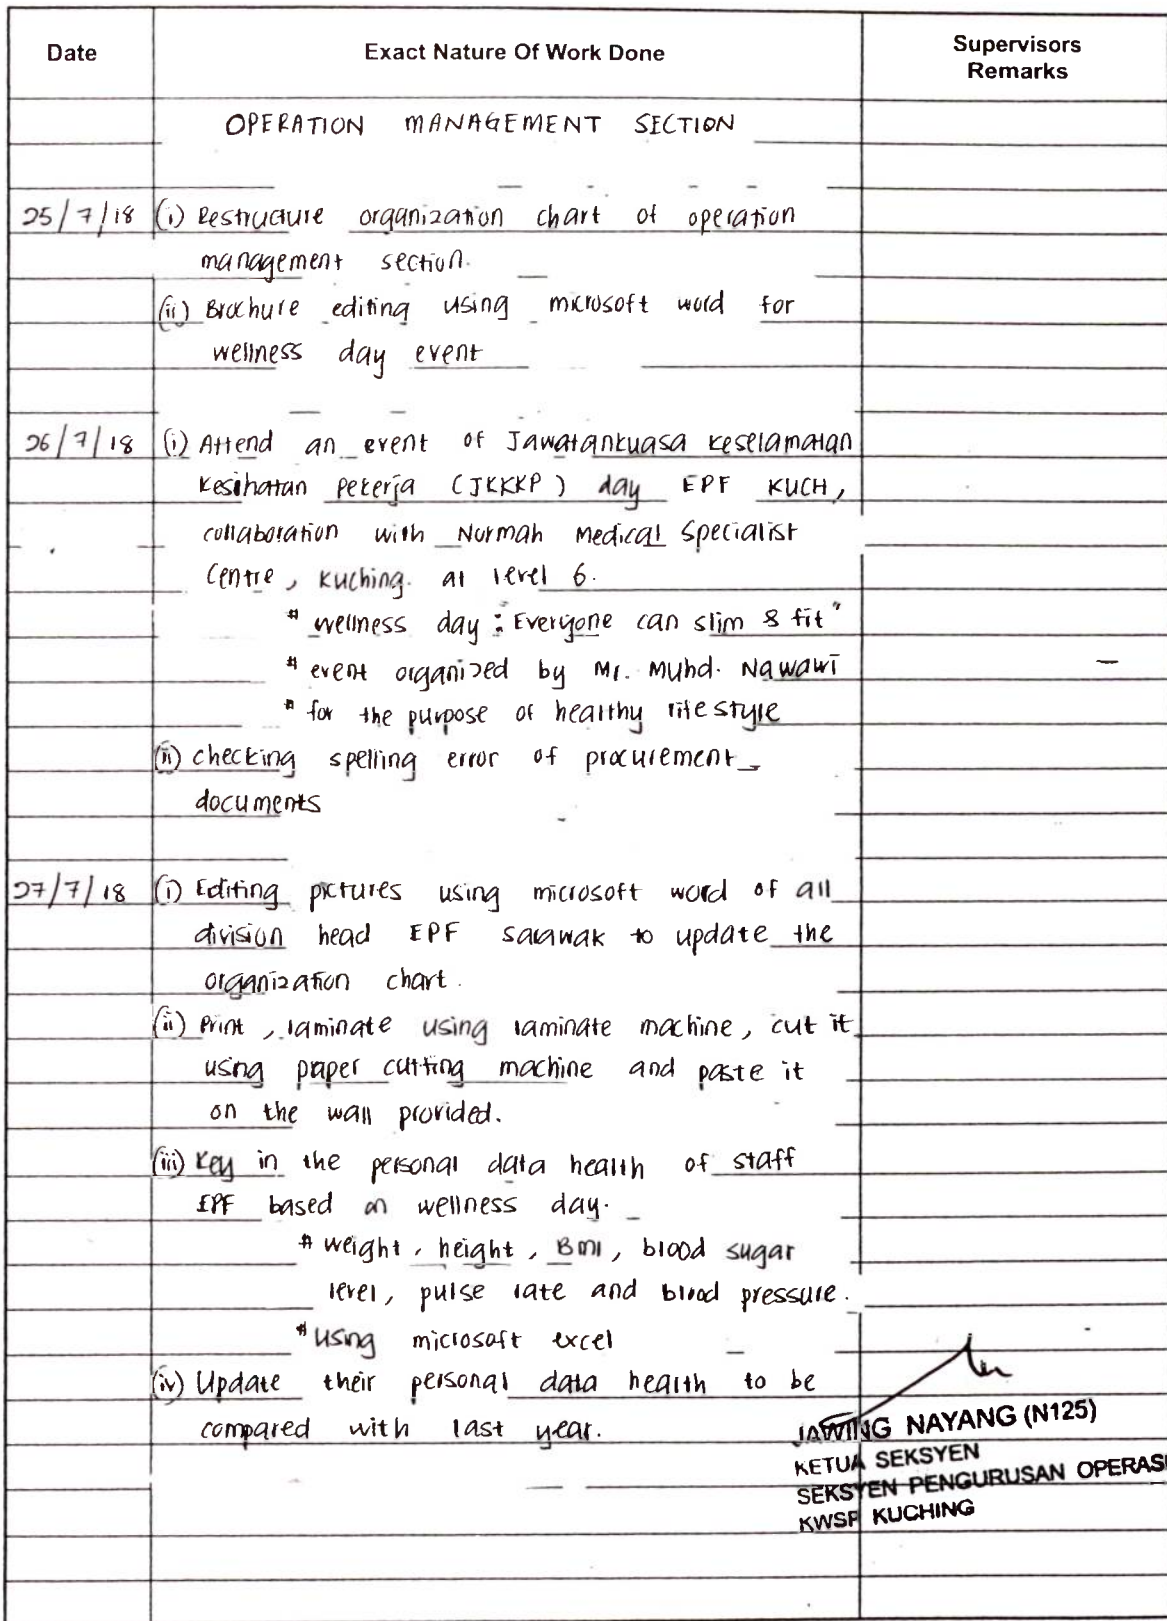 Date Exact Nature Of Work Done Supervisors Remarks
OPERATION MANAGEMENT SECTION
25/7/18 (i) Restructure organization chart of operation
management section.
(ii) Brochure editing using microsoft word for
wellness day event
26/7/18 (i) Attend an event of Jawatankuasa Keselamatan
Kesihatan Pekerja (JKKKP) day EPF KUCH,
collaboration with Normah Medical Specialist
Centre, Kuching. at level 6.
* wellness day : Everyone can slim & fit"
* event organized by Mr. Muhd. Nawawi
* for the purpose of healthy lifestyle
(ii) checking spelling error of procurement
documents
27/7/18 (i) Editing pictures using microsoft word of all
division head EPF Sarawak to update the
organization chart.
(ii) Print, laminate using laminate machine, cut it
using paper cutting machine and paste it
on the wall provided.
(iii) Key in the personal data health of staff
EPF based on wellness day.
* weight, height, BMI, blood sugar
level, pulse rate and blood pressure.
* using microsoft excel
(iv) Update their personal data health to be
compared with last year.
JAWING NAYANG (N125)
KETUA SEKSYEN
SEKSYEN PENGURUSAN OPERASI
KWSP KUCHING